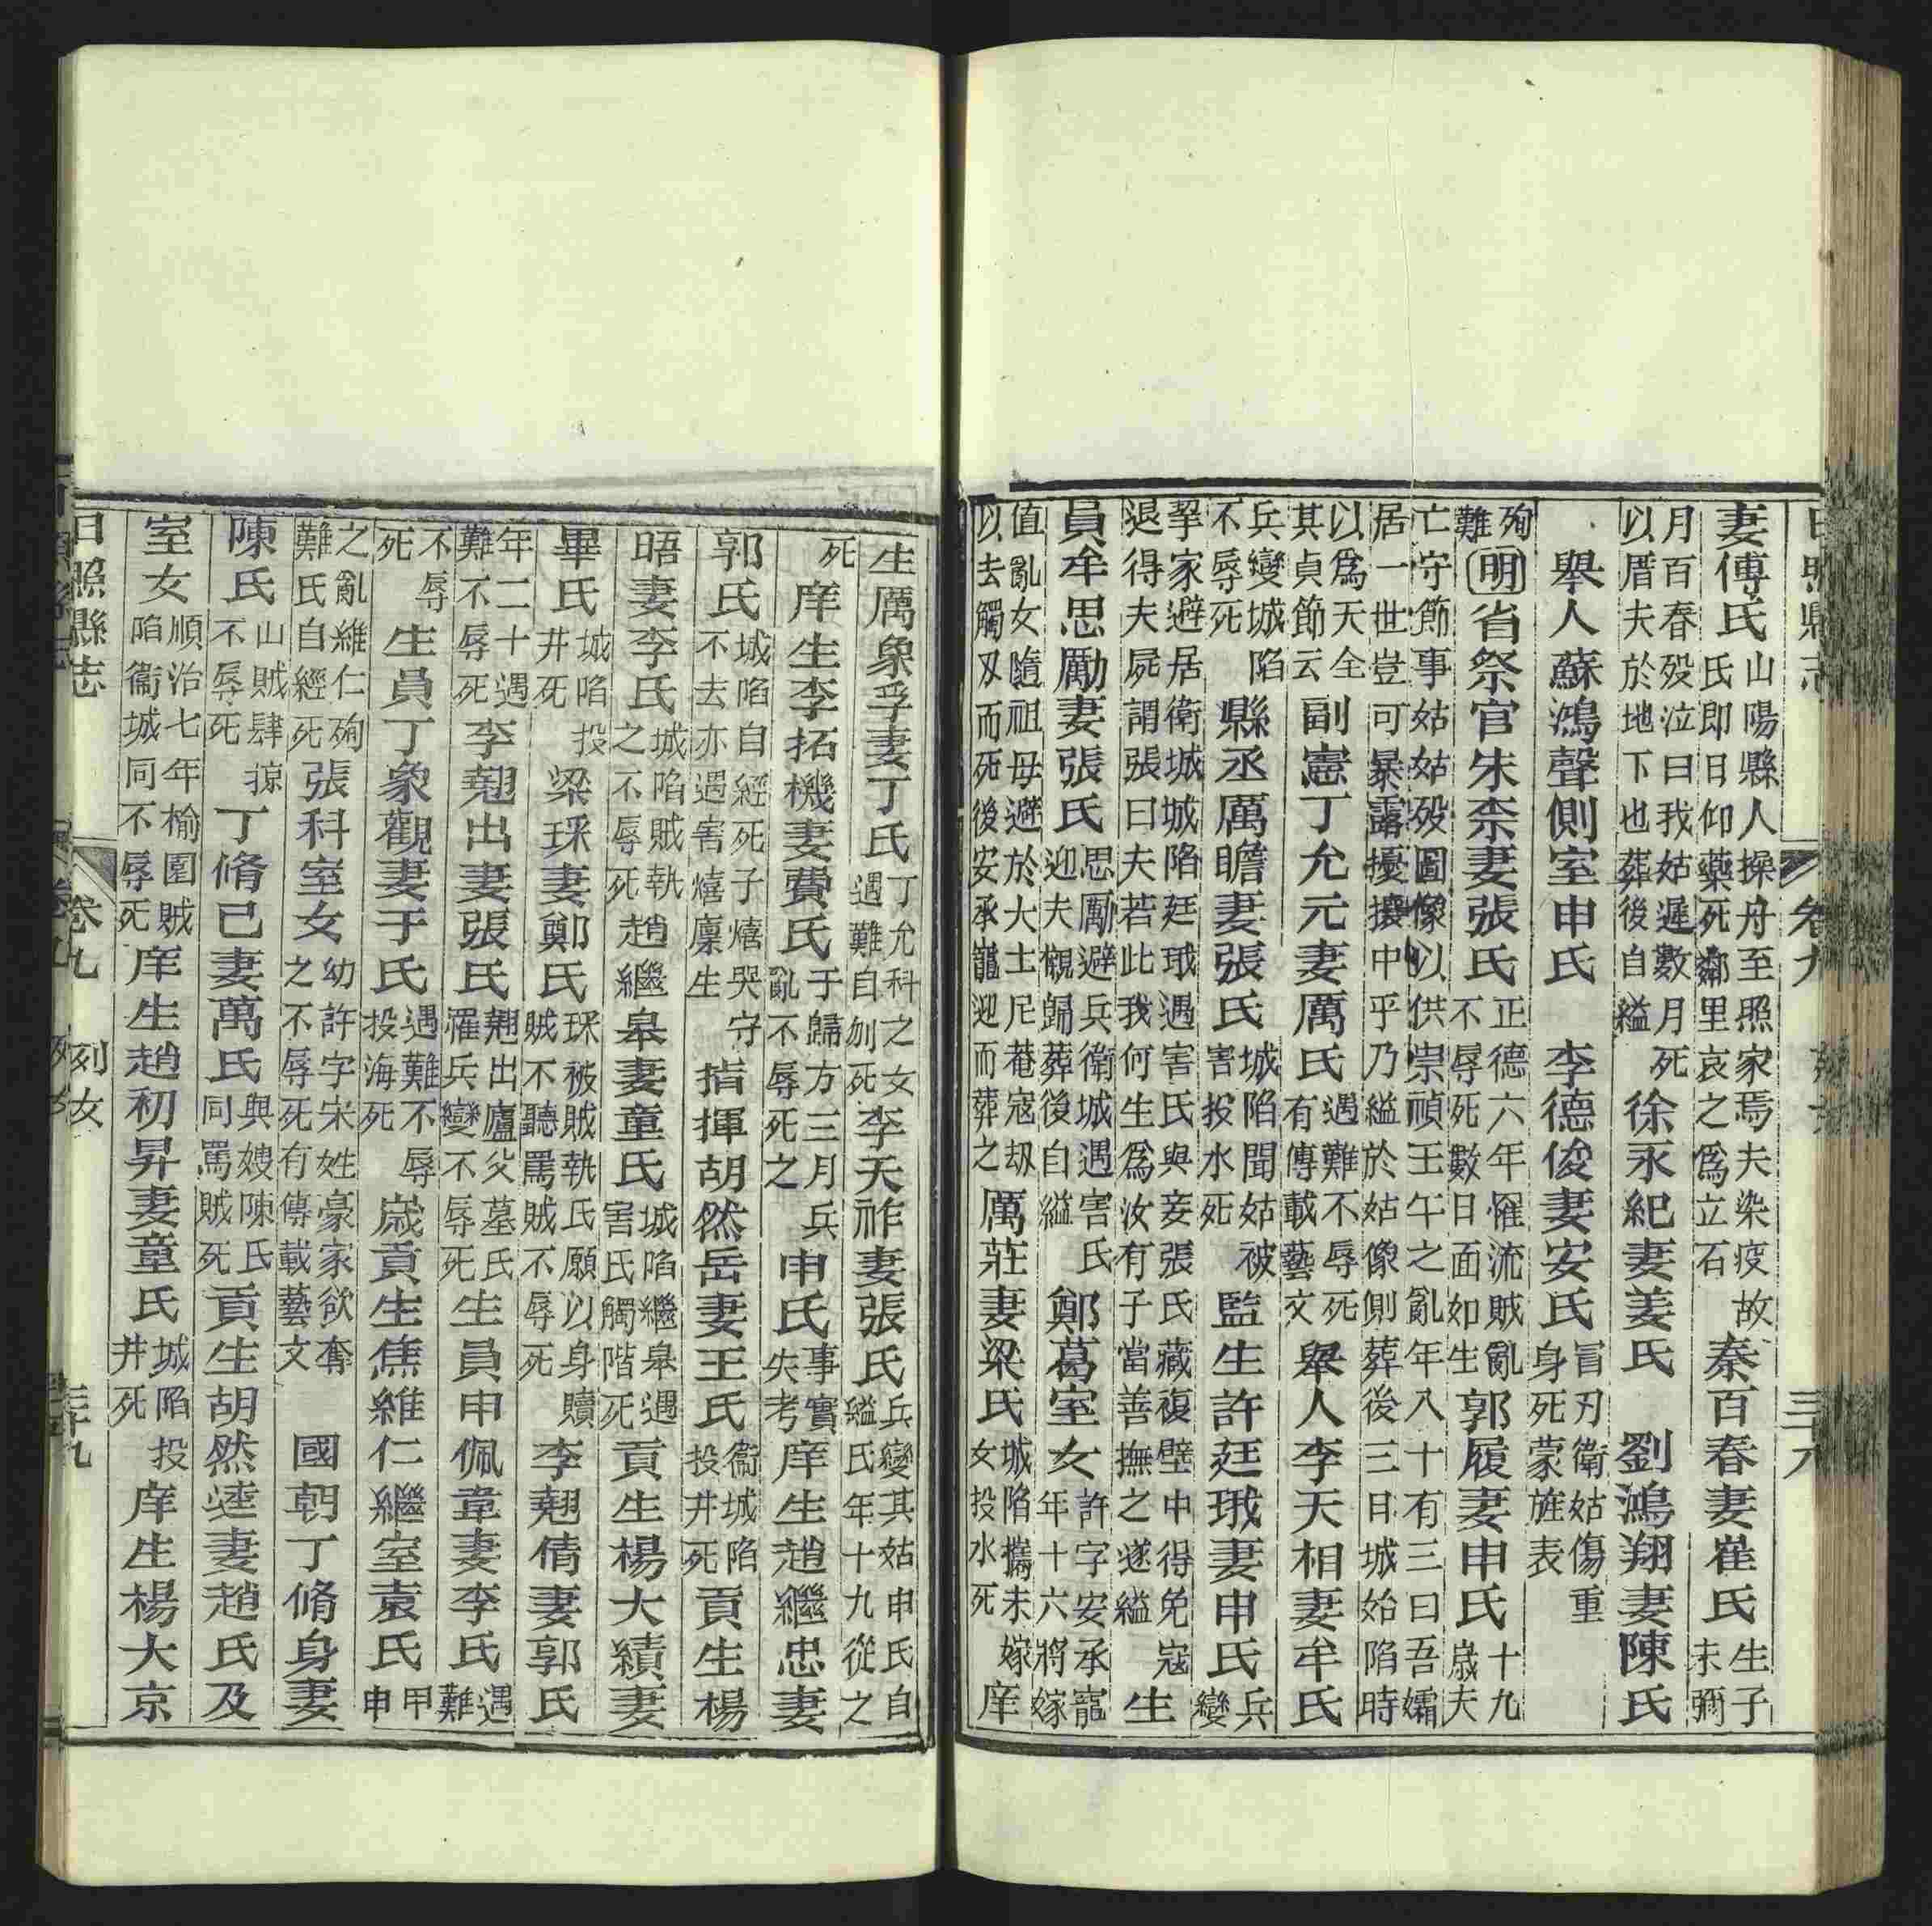 日照縣志 卷九 三八
妻傅氏山陽縣人操舟至照家焉夫染疫故氏即日仰藥死鄰里哀之爲立石秦百春妻崔氏生子未彌
月百春歿泣曰我姑遲數月死以厝夫於地下也葬後自縊徐永紀妻姜氏 劉鴻翔妻陳氏
舉人蘇鴻聲側室申氏 李德俊妻安氏冒刃衛姑傷重身死蒙旌表
殉難明省祭官朱柰妻張氏正德六年罹流賊亂不辱死數日面如生郭履妻申氏十九歲夫
亡守節事姑姑歿圖像以供崇禎壬午之亂年八十有三曰吾孀居一世豈可暴露擾攘中乎乃縊於姑像側葬後三日城始陷時
以爲天全其貞節云副憲丁允元妻厲氏遇難不辱死有傳載藝文舉人李天相妻牟氏
兵變城陷不辱死縣丞厲瞻妻張氏城陷聞姑被害投水死監生許廷珴妻申氏兵變
挈家避居衛城城陷廷珴遇害氏與妾張氏藏複壁中得免寇退得夫屍謂張曰夫若此我何生爲汝有子當善撫之遂縊生
員牟思勵妻張氏思勵避兵衛城遇害氏迎夫櫬歸葬後自縊鄭葛室女許字安承寵年十六將嫁
值亂女隨祖母避於大士尼菴寇刼以去觸刄而死後安承寵迎而葬之厲莊妻梁氏城陷攜未嫁女投水死庠
生厲象孚妻丁氏丁允科之女遇難自刎死李天祚妻張氏兵變其姑申氏自縊氏年十九從之
死庠生李拓機妻費氏于歸方三月兵亂不辱死之申氏事實失考庠生趙繼忠妻
郭氏城陷自經死子熺哭守不去亦遇害熺廪生指揮胡然岳妻王氏衞城陷投井死貢生楊
晤妻李氏城陷賊執之不辱死趙繼皋妻童氏城陷繼皋遇害氏觸階死貢生楊大績妻
畢氏城陷投井死梁琛妻鄭氏琛被賊執氏願以身贖賊不聽罵賊不辱死李翹倩妻郭氏
年二十遇難不辱死李翹出妻張氏翹出廬父墓氏罹兵變不辱死生員申佩韋妻李氏遇難
不辱死生員丁象觀妻于氏遇難不辱投海死歲貢生焦維仁繼室袁氏甲申
之亂維仁殉難氏自經死張科室女幼許字宋姓豪家欲奪之不辱死有傳載藝文 國朝丁脩身妻
陳氏山賊肆掠不辱死丁脩己妻萬氏與嫂陳氏同罵賊死貢生胡然逵妻趙氏及
室女順治七年榆園賊陷衞城同不辱死庠生趙初昇妻童氏城陷投井死庠生楊大京
日照縣志 卷九 列女 三十九